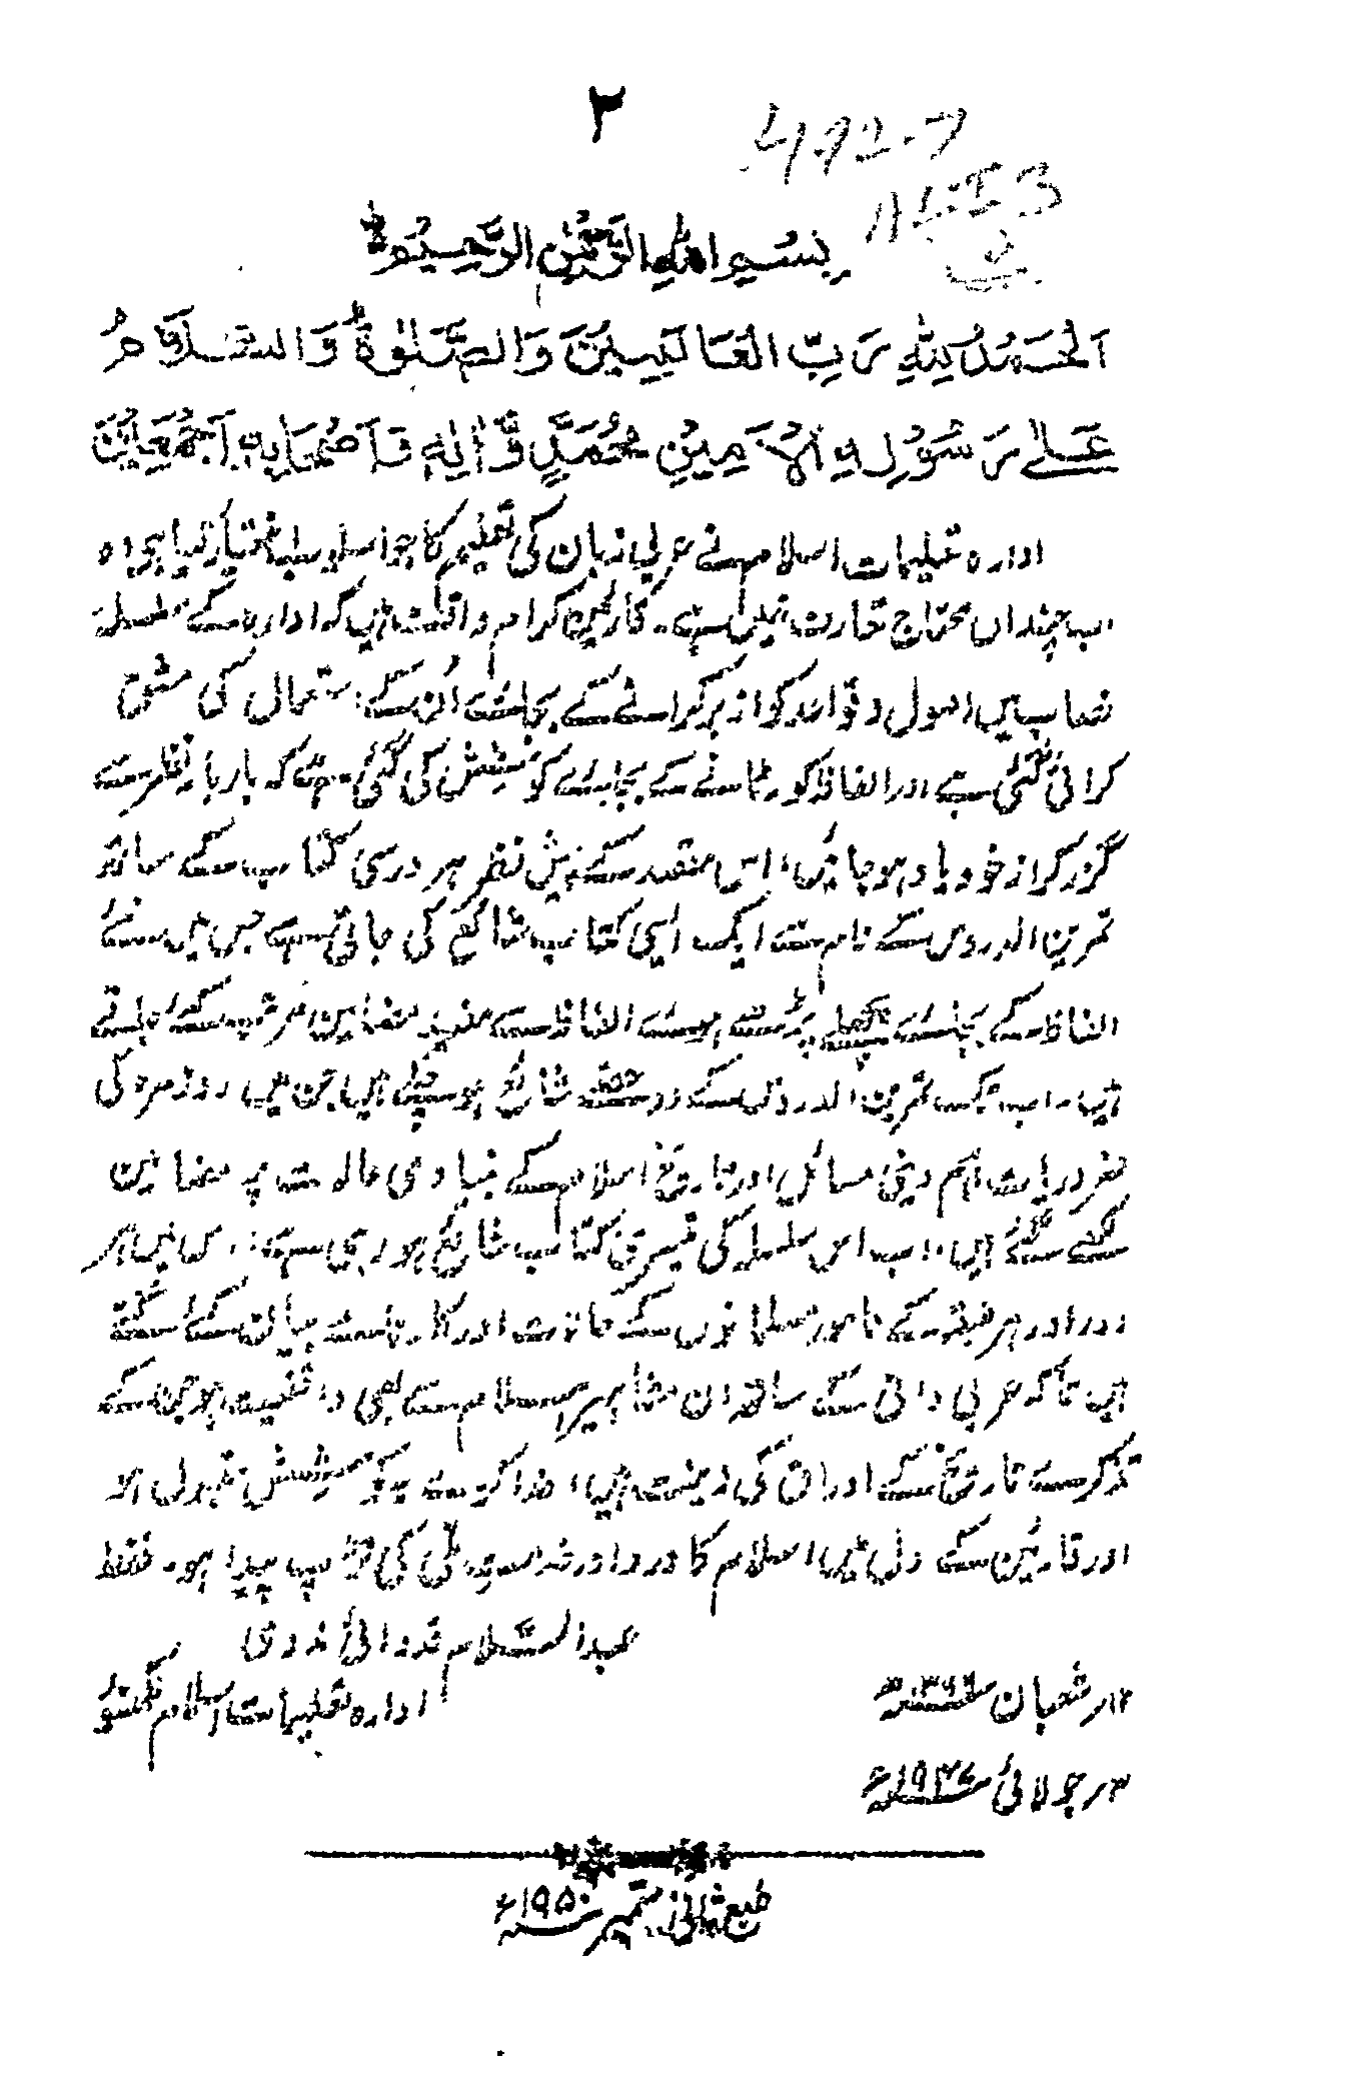 ۲
492.7
بِسْمِ اللهِ الرَّحْمٰنِ الرَّحِيْمِ
اَلْحَمْدُ لِلّٰهِ رَبِّ الْعَالَمِيْنَ وَالصَّلٰوةُ وَالسَّلَامُ
عَلٰى رَسُوْلِهِ الْاَمِيْنِ مُحَمَّدٍ وَّاٰلِهٖ وَاَصْحَابِهٖ اَجْمَعِيْنَ
ادارہ تعلیمات اسلام نے عربی زبان کی تعلیم کا جو اسلوب اختیار کیا ہے وہ
اب چنداں محتاج تعارف نہیں ہے۔ ناظرین کرام واقف ہیں کہ ادارہ کے سلسلہ
نصاب میں اصول و قواعد کو ازبر کرانے کے بجائے اُن کے استعمال کی مشق
کرائی گئی ہے اور الفاظ کو رٹانے کے بجائے کوشش کی گئی ہے کہ بار بار نظر سے
گزر کر از خود یاد ہو جائیں، اس مقصد کے پیش نظر ہر درسی کتاب کے ساتھ
تمرین الدروس کے نام سے ایک ایسی کتاب شائع کی جاتی ہے جس میں نئے
الفاظ کے بجائے پچھلے پڑھے ہوئے الفاظ سے مفید مضامین مرتب کئے جاتے
ہیں۔ اب تک تمرین الدروس کے دو حصّے شائع ہو چکے ہیں جن میں روزمرہ کی
ضروریات، اہم دینی مسائل اور تاریخ اسلام کے بنیادی حالات پر مضامین
لکھے گئے ہیں۔ اب اس سلسلہ کی تیسری کتاب شائع ہو رہی ہے، اس میں ہر
دور اور ہر طبقہ کے نامور مسلمانوں کے حالات اور کارنامے بیان کئے گئے
ہیں تاکہ عربی دانی کے ساتھ ان مشاہیر اسلام سے بھی واقفیت ہو جن کے
تذکرے تاریخ کے اوراق کی زینت ہیں، خدا کرے یہ کوشش قبول ہو
اور قارئین کے دل میں اسلام کا درد اور خدمت ملّی کی تڑپ پیدا ہو۔ فقط
عبدالسّلام قدوائی ندوی
ادارہ تعلیمات اسلام لکھنؤ
شعبان ۱۳۶۶ھ
۳ر جولائی ۱۹۴۷ء
طبع ثانی ستمبر ۱۹۵۰ء